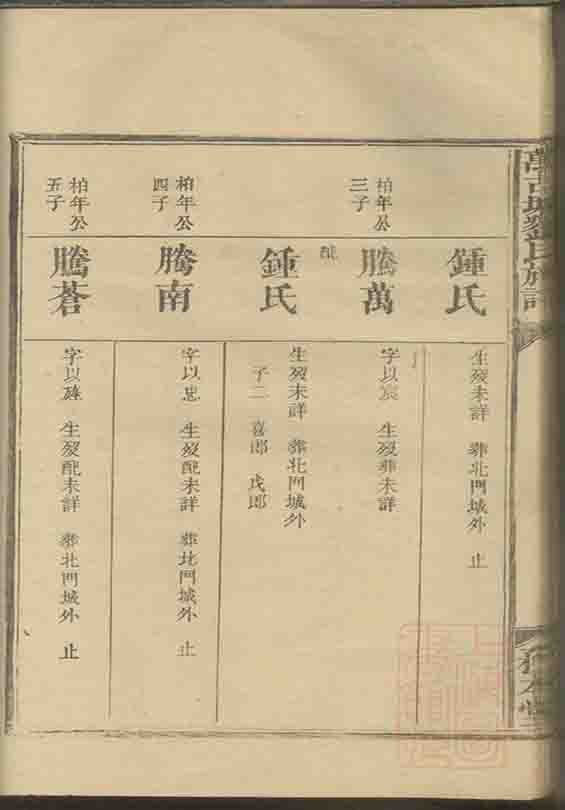 鍾氏
生歿未詳 葬北門城外 止
柏年公
三子
騰萬
字以宸 生歿葬未詳
配
鍾氏
生歿未詳 葬北門城外
子二 喜郎 戌郎
柏年公
四子
騰南
字以忠 生歿配未詳 葬北門城外 止
柏年公
五子
騰蒼
字以 生歿配未詳 葬北門城外 止